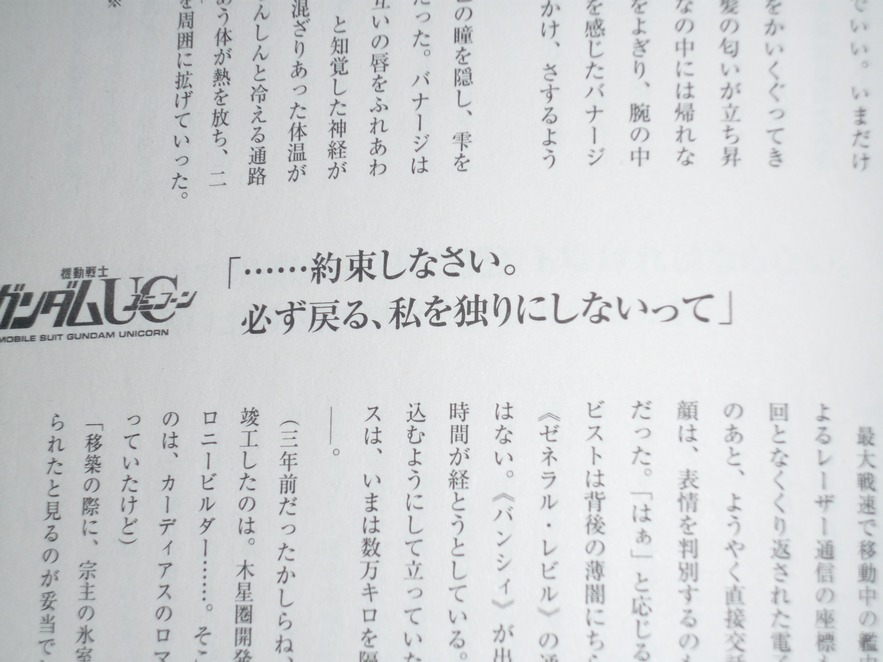 でいい。いまだけ
をかいくぐってき
髪の匂いが立ち昇
なの中には帰れな
をよぎり、腕の中
を感じたバナージ
かけ、さするよう
の瞳を隠し、雫を
だった。バナージは
互いの唇をふれあわ
と知覚した神経が
混ざりあった体温が
しんしんと冷える通路
あう体が熱を放ち、二
を周囲に拡げていった。
※
「……約束しなさい。
必ず戻る、私を独りにしないって」
機動戦士
ガンダムUC
ユニコーン
MOBILE SUIT GUNDAM UNICORN
最大戦速で移動中の艦
よるレーザー通信の座標
回となくくり返された電
のあと、ようやく直接交
顔は、表情を判別するのも
だった。「はぁ」と応じる
ビストは背後の薄闇にちら
《ゼネラル・レビル》の通
はない。《バンシィ》が出
時間が経とうとしている。
込むようにして立っていた
スは、いまは数万キロを隔
――。
(三年前だったかしらね、
竣工したのは。木星圏開発
ロニービルダー……。そこ
のは、カーディアスのロマ
っていたけど)
「移築の際に、宗主の氷室
られたと見るのが妥当で